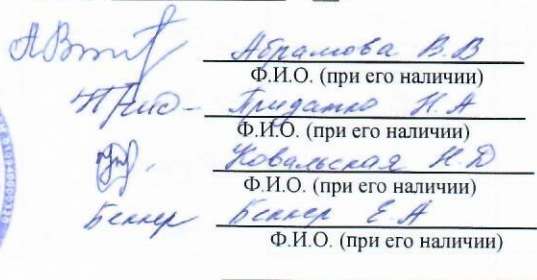 Абрамова В.В
Ф.И.О. (при его наличии)
Придатко Н.А
Ф.И.О. (при его наличии)
Ковальская Н.Д
Ф.И.О. (при его наличии)
Беккер Беккер Е.А
Ф.И.О. (при его наличии)